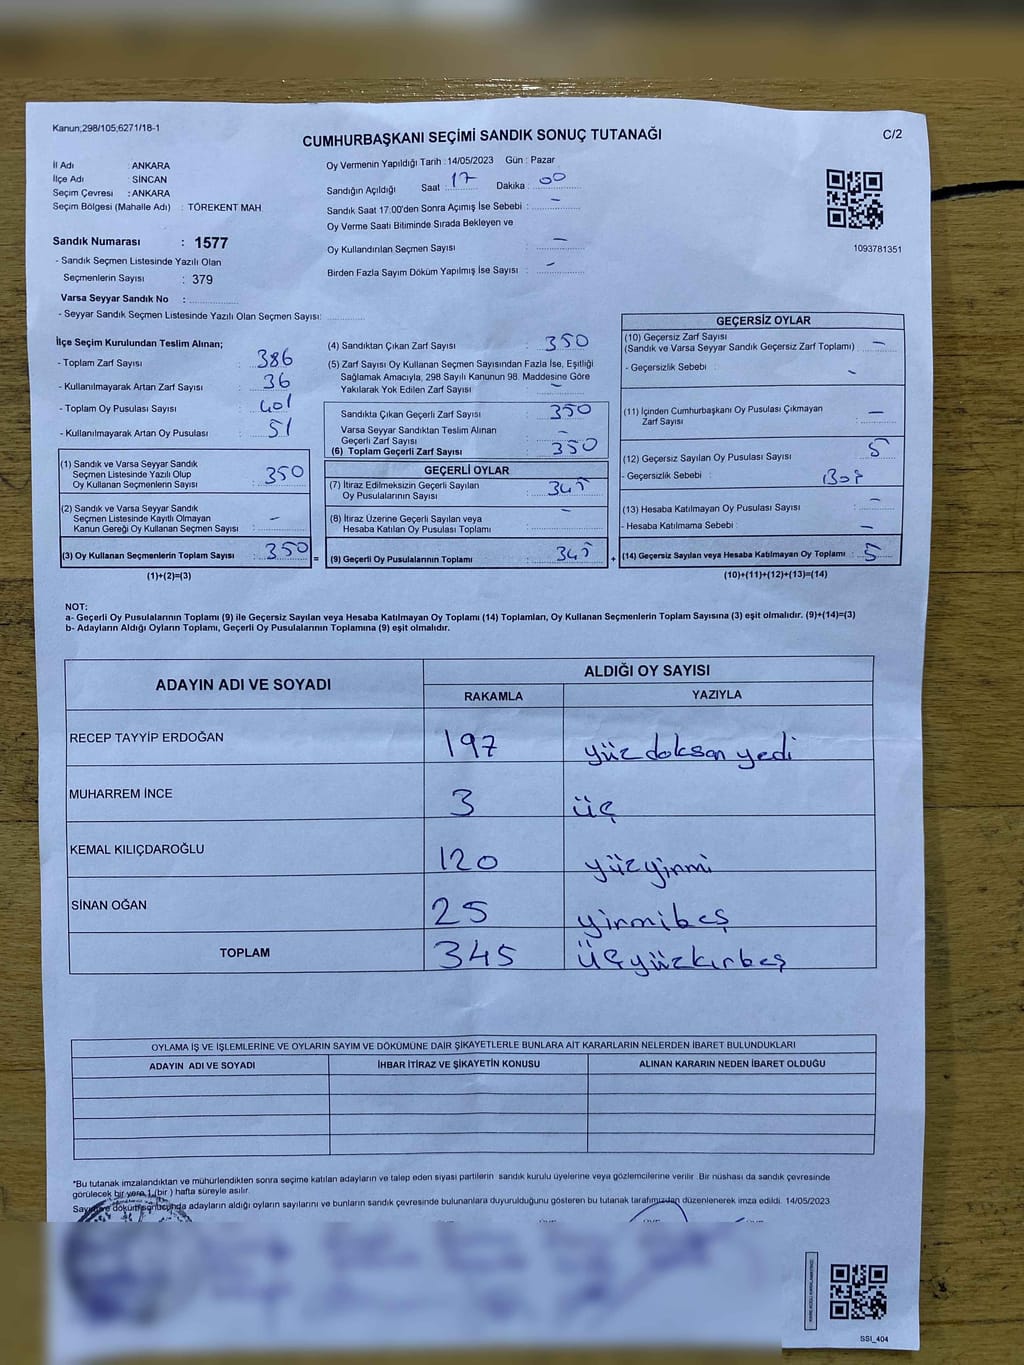 Kanun;298/105;6271/18-1
CUMHURBAŞKANI SEÇİMİ SANDIK SONUÇ TUTANAĞI
C/2
İl Adı : ANKARA
İlçe Adı : SİNCAN
Seçim Çevresi : ANKARA
Seçim Bölgesi (Mahalle Adı) : TÖREKENT MAH.
Oy Vermenin Yapıldığı Tarih : 14/05/2023 Gün : Pazar
Sandığın Açıldığı Saat : 17 Dakika : 00
Sandık Saat 17:00'den Sonra Açımış İse Sebebi : -
Oy Verme Saati Bitiminde Sırada Bekleyen ve
Oy Kullandırılan Seçmen Sayısı : -
Birden Fazla Sayım Döküm Yapılmış İse Sayısı : -
1093781351
Sandık Numarası : 1577
- Sandık Seçmen Listesinde Yazılı Olan
Seçmenlerin Sayısı : 379
Varsa Seyyar Sandık No :
- Seyyar Sandık Seçmen Listesinde Yazılı Olan Seçmen Sayısı:
İlçe Seçim Kurulundan Teslim Alınan;
- Toplam Zarf Sayısı : 386
- Kullanılmayarak Artan Zarf Sayısı : 36
- Toplam Oy Pusulası Sayısı : 401
- Kullanılmayarak Artan Oy Pusulası : 51
(1) Sandık ve Varsa Seyyar Sandık
Seçmen Listesinde Yazılı Olup
Oy Kullanan Seçmenlerin Sayısı : 350
(2) Sandık ve Varsa Seyyar Sandık
Seçmen Listesinde Kayıtlı Olmayan
Kanun Gereği Oy Kullanan Seçmen Sayısı : -
(3) Oy Kullanan Seçmenlerin Toplam Sayısı : 350
(1)+(2)=(3)
(4) Sandıktan Çıkan Zarf Sayısı : 350
(5) Zarf Sayısı Oy Kullanan Seçmen Sayısından Fazla İse, Eşitliği
Sağlamak Amacıyla, 298 Sayılı Kanunun 98. Maddesine Göre
Yakılarak Yok Edilen Zarf Sayısı : -
Sandıkta Çıkan Geçerli Zarf Sayısı : 350
Varsa Seyyar Sandıktan Teslim Alınan
Geçerli Zarf Sayısı : -
(6) Toplam Geçerli Zarf Sayısı : 350
GEÇERLİ OYLAR
(7) İtiraz Edilmeksizin Geçerli Sayılan
Oy Pusulalarının Sayısı : 345
(8) İtiraz Üzerine Geçerli Sayılan veya
Hesaba Katılan Oy Pusulası Toplamı : -
= (9) Geçerli Oy Pusulalarının Toplamı : 345 +
GEÇERSİZ OYLAR
(10) Geçersiz Zarf Sayısı
(Sandık ve Varsa Seyyar Sandık Geçersiz Zarf Toplamı) : -
- Geçersizlik Sebebi : -
(11) İçinden Cumhurbaşkanı Oy Pusulası Çıkmayan
Zarf Sayısı : -
(12) Geçersiz Sayılan Oy Pusulası Sayısı : 5
- Geçersizlik Sebebi :
(13) Hesaba Katılmayan Oy Pusulası Sayısı : -
- Hesaba Katılmama Sebebi : -
(14) Geçersiz Sayılan veya Hesaba Katılmayan Oy Toplamı : 5
(10)+(11)+(12)+(13)=(14)
NOT:
a- Geçerli Oy Pusulalarının Toplamı (9) ile Geçersiz Sayılan veya Hesaba Katılmayan Oy Toplamı (14) Toplamları, Oy Kullanan Seçmenlerin Toplam Sayısına (3) eşit olmalıdır. (9)+(14)=(3)
b- Adayların Aldığı Oyların Toplamı, Geçerli Oy Pusulalarının Toplamına (9) eşit olmalıdır.
ADAYIN ADI VE SOYADI ALDIĞI OY SAYISI
RAKAMLA YAZIYLA
RECEP TAYYİP ERDOĞAN 197 yüzdoksan yedi
MUHARREM İNCE 3 üç
KEMAL KILIÇDAROĞLU 120 yüzyirmi
SİNAN OĞAN 25 yirmibeş
TOPLAM 345 Üçyüzkırbeş
OYLAMA İŞ VE İŞLEMLERİNE VE OYLARIN SAYIM VE DÖKÜMÜNE DAİR ŞİKAYETLERLE BUNLARA AİT KARARLARIN NELERDEN İBARET BULUNDUKLARI
ADAYIN ADI VE SOYADI İHBAR İTİRAZ VE ŞİKAYETİN KONUSU ALINAN KARARIN NEDEN İBARET OLDUĞU
*Bu tutanak imzalandıktan ve mühürlendikten sonra seçime katılan adayların ve talep eden siyasi partilerin sandık kurulu üyelerine veya gözlemcilerine verilir. Bir nüshası da sandık çevresinde
görülecek bir yere 1 (bir ) hafta süreyle asılır.
Sayım ve döküm sonucunda adayların aldığı oyların sayılarını ve bunların sandık çevresinde bulunanlara duyurulduğunu gösteren bu tutanak tarafımızdan düzenlenerek imza edildi. 14/05/2023
SSI_404